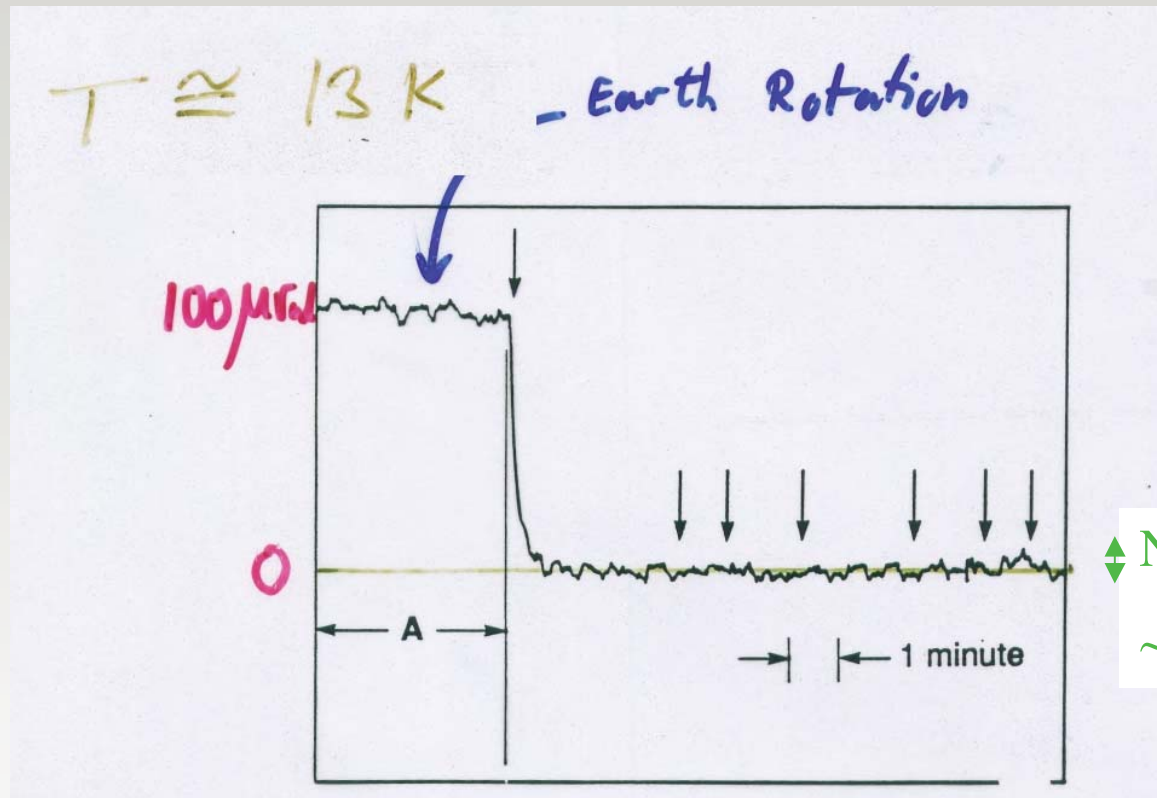 T ≅ 13 K - Earth Rotation
100 μrad
0
N
~
A
1 minute